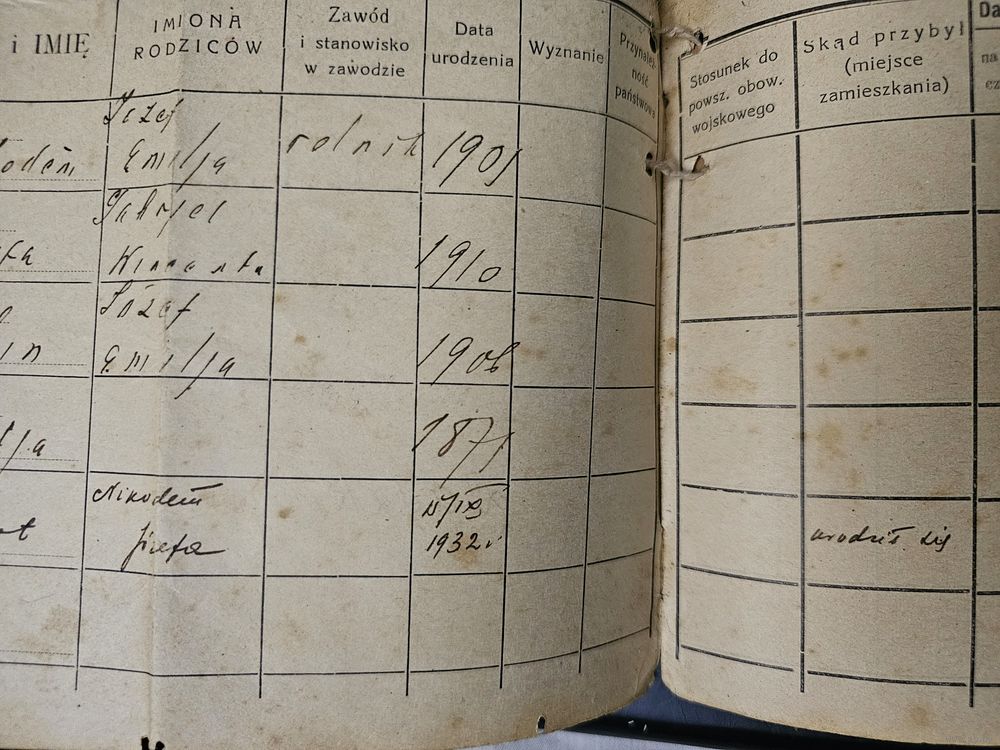 i IMIĘ
IMIONA
RODZICÓW
Zawód
i stanowisko
w zawodzie
Data
urodzenia
Wyznanie
Przynależ-
ność
państwowa
Stosunek do
powsz. obow.
wojskowego
Skąd przybył
(miejsce
zamieszkania)
Da
na
cz
Józef
odem
Emilja
rolnik
1901
Gabryel
1910
Józef
in
Emilja
1906
1871
Nikodem
Józefa
IX
1932 r
urodził się